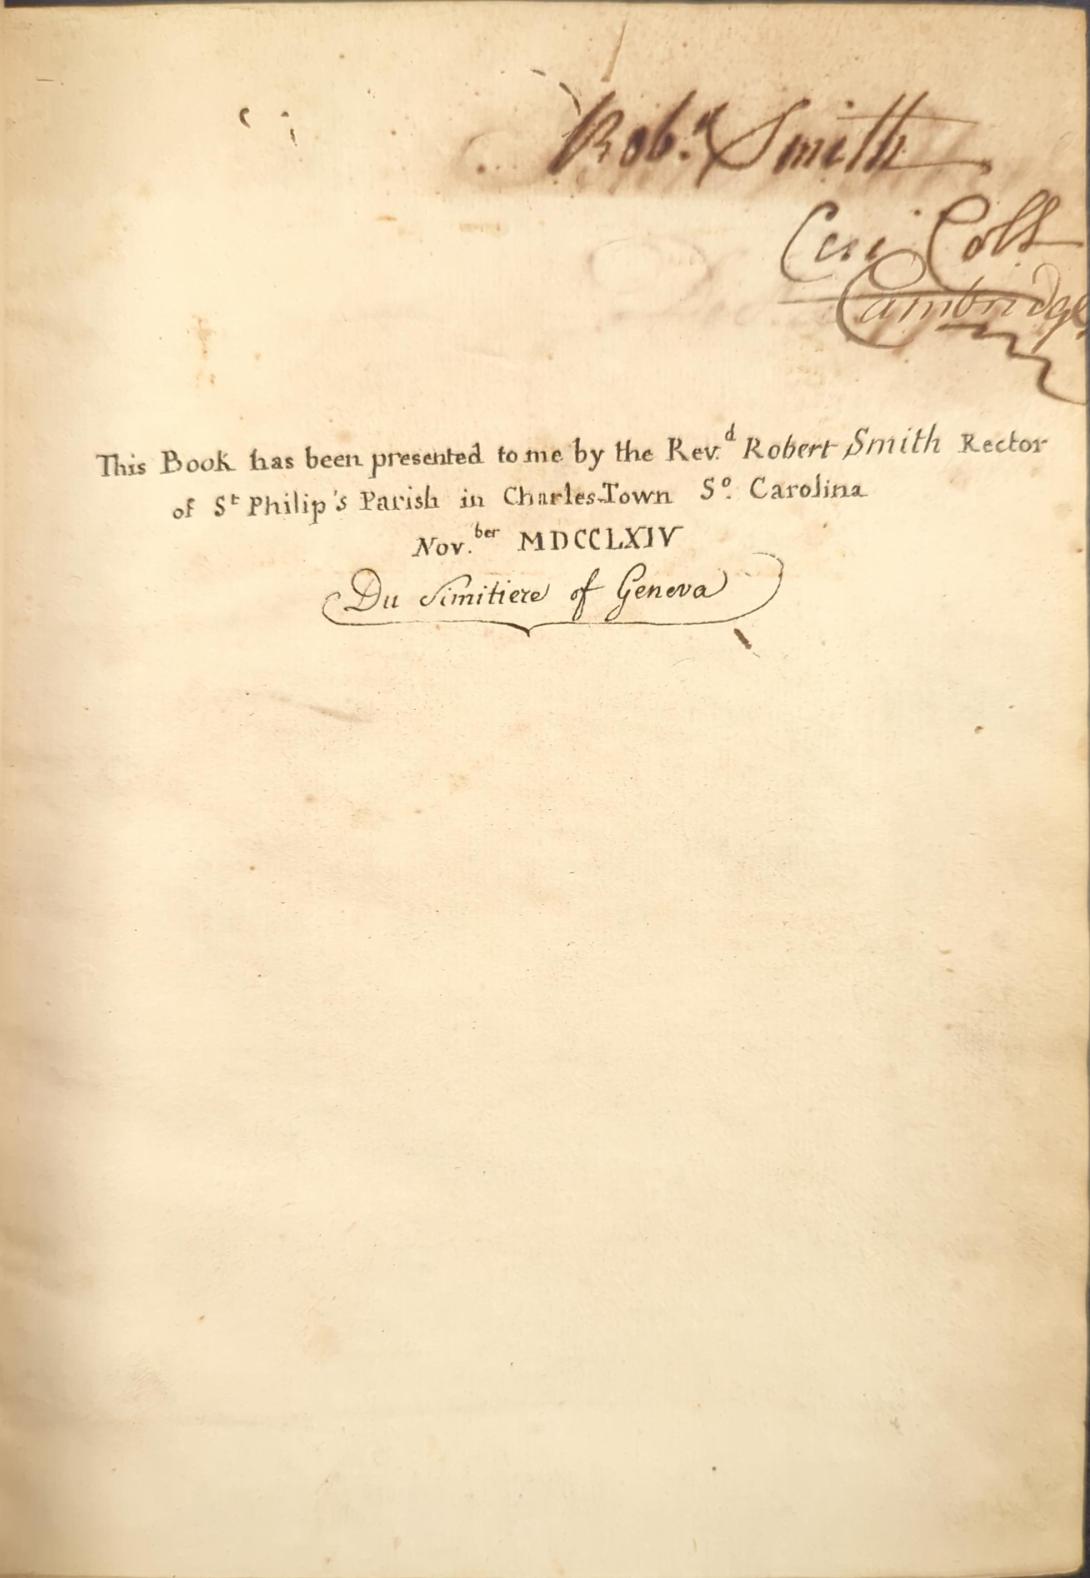 Rob.t Smith
Coll
Cambridge
This Book has been presented to me by the Rev.d Robert Smith Rector
of St Philip's Parish in Charles-Town So. Carolina
Nov.ber MDCCLXIV
Du Simitiere of Geneva